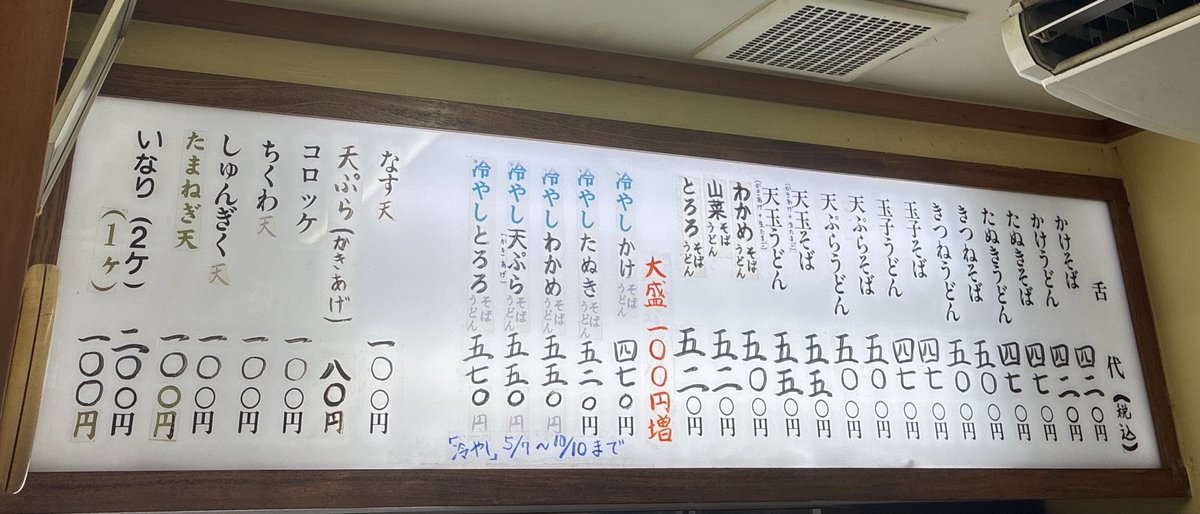 舌代(税込)
かけそば 四二〇円
かけうどん 四二〇円
たぬきそば 四七〇円
たぬきうどん 四七〇円
きつねそば 五〇〇円
きつねうどん 五〇〇円
玉子そば 四七〇円
玉子うどん 四七〇円
天ぷらそば 五〇〇円
天ぷらうどん 五〇〇円
天玉そば 五五〇円
(かきあげ+生たまご)
天玉うどん 五五〇円
(かきあげ+生たまご)
わかめ そば うどん 五〇〇円
山菜 そば うどん 五二〇円
とろろ そば うどん 五二〇円
大盛 一〇〇円増
冷やしかけ そば うどん 四七〇円
冷やしたぬき そば うどん 五二〇円
冷やしわかめ そば うどん 五五〇円
冷やし天ぷら(かきあげ) そば うどん 五五〇円
冷やしとろろ そば うどん 五七〇円
「冷やし」5/7〜10/10まで
なす天 一〇〇円
天ぷら(かきあげ) 八〇円
コロッケ 一〇〇円
ちくわ天 一〇〇円
しゅんぎく天 一〇〇円
たまねぎ天 一〇〇円
いなり(2ケ) 二〇〇円
(1ケ) 一〇〇円